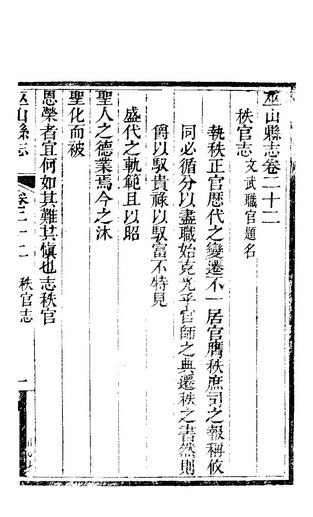 巫山縣志卷二十二
秩官志 文武職官題名
執秩正官歷代之變遷不一居官膺秩庶司之報稱攸
同必循分以盡職始克光乎官師之典遷秩之書然則
爵以馭貴祿以馭富不特見
盛代之軌範且以昭
聖人之德業焉今之沐
聖化而被
恩榮者宜何如其難其慎也志秩官
巫山縣志 卷二十二 秩官志 一